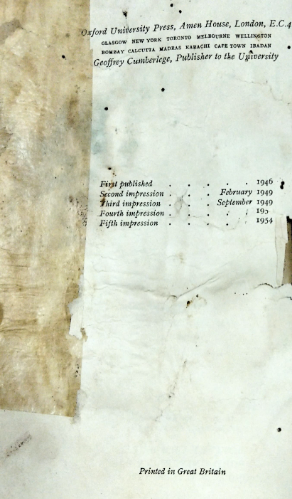 Oxford University Press, Amen House, London, E.C.4
GLASGOW NEW YORK TORONTO MELBOURNE WELLINGTON
BOMBAY CALCUTTA MADRAS KARACHI CAPE TOWN IBADAN
Geoffrey Cumberlege, Publisher to the University
First published . . . . . 1946
Second impression . . . February 1949
Third impression . . . September 1949
Fourth impression . . . . 195
Fifth impression . . . . 1954
Printed in Great Britain